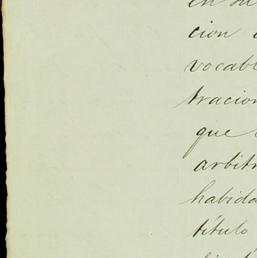 en su
cion
vocabl
tracion
que
arbitr
habida
título